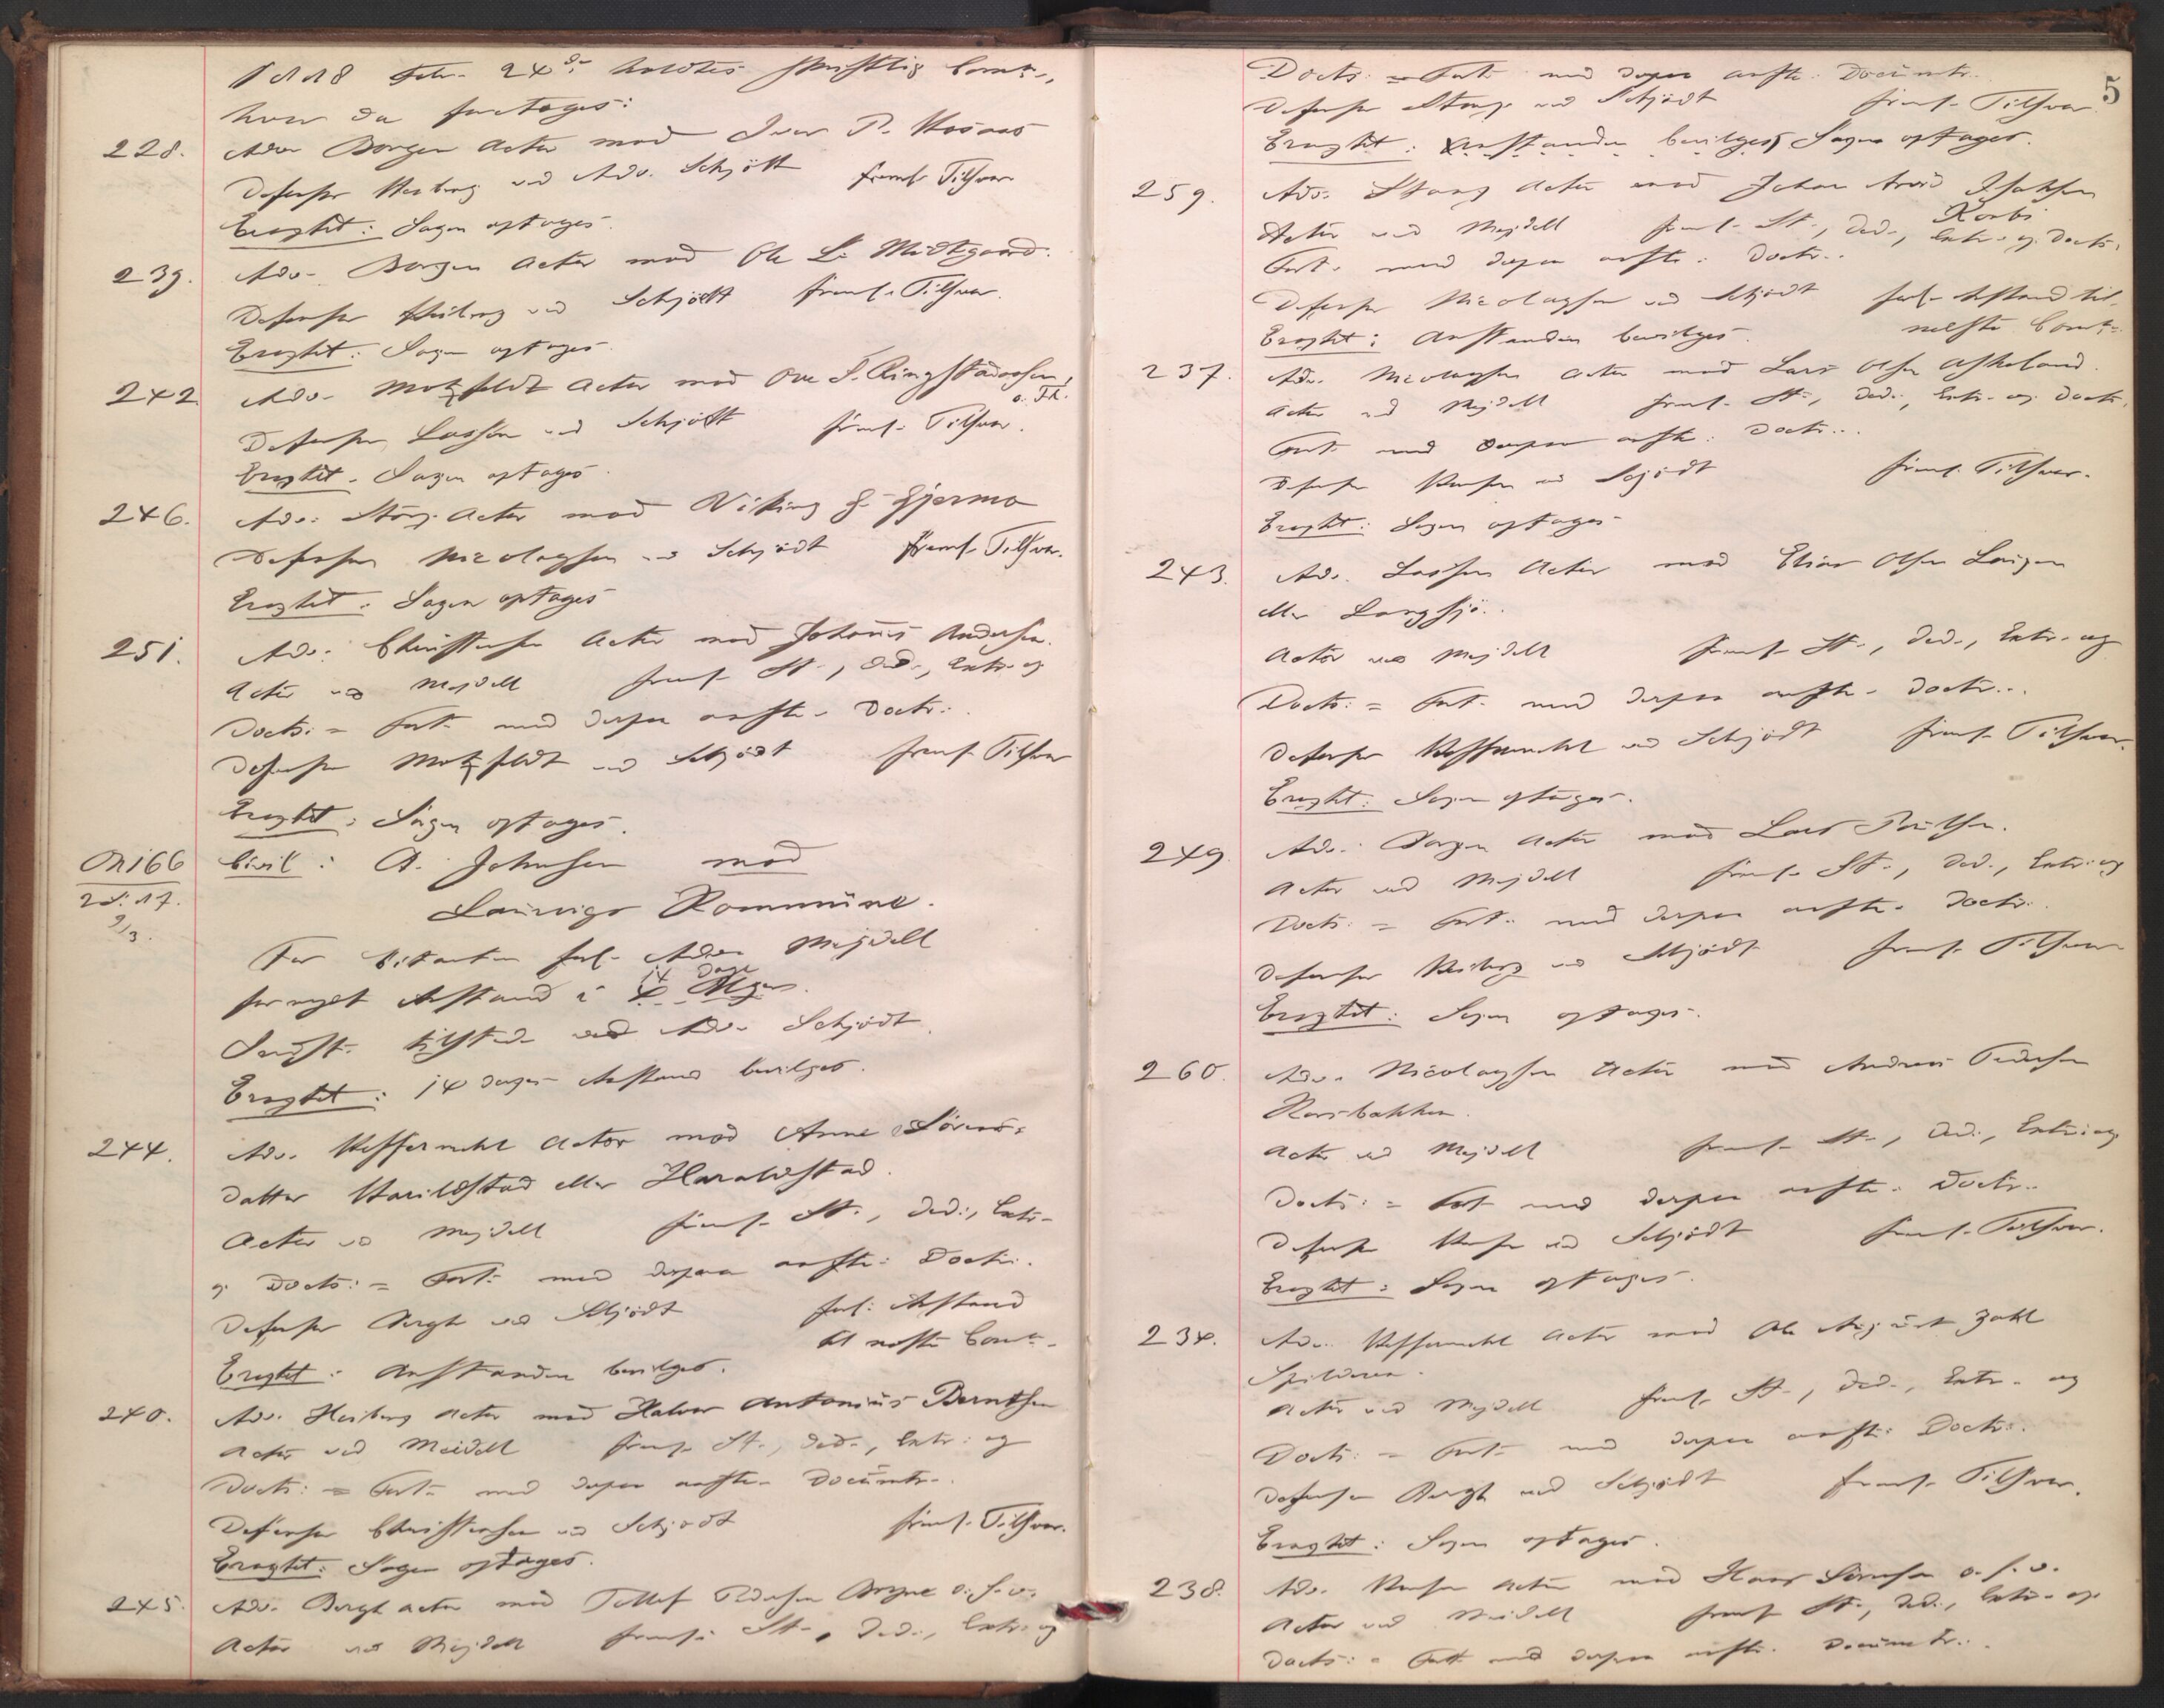 1818 Febr. 24de holdtes skriftlig Court.,
hvor da foretoges:
228. Adv. Borgen Actor mod Iver P. Mosaas
Defensor Heiberg ved Adv. Schjött freml. Tilsvar
Eragtet: Sagen optages.
239. Adv. Borgen Actor mod Ole L. Midtgaard.
Defensor Heiberg ved Schjödt freml. Tilsvar.
Eragtet: Sagen optages.
242 Adv. Motzfeldt Actor mod Ove S. Ringstadaasen,
o. Fl.
Defensor Lasson ved Schjödt freml. Tilsvar.
Eragtet. Sagen optages.
246. Adv. Stang Actor mod Viking G. Gjermo
Defensor Nicolaysen ved Schjödt freml. Tilsvar.
Eragtet. Sagen optages
251. Adv. Christensen Actor mod Johannes Andersen.
Actor ved Mejdell freml. St., Ded., Extr. og
Docts. = Fort. med derpaa anfte. Doctr.
Defensor Motzfeldt ved Schjödt freml. Tilsvar
Eragtet: Sagen optages.
No 166 Civil: A. Johnsen mod
2d: 17. Laurvigs Kommune.
9/3.
For Citanten forl. Adv. Mejdell
14 Dage
fornyet Anstand i 4 Uger.
Indst. tilstede ved Adv. Schjödt.
Eragtet: 14 Dages Anstand bevilges.
244. Adv. Hesselberg Actor mod Anne Sörens-
datter Harildstad eller Haraldstad.
Actor ved Mejdell freml. St., Ded., Extr.
og Docts: = Fort. med derpaa anfte. Doctr.
Defensor Bergh ved Schjödt forl. Anstand
til næste Court.
Eragtet: Anstanden bevilges.
240. Adv. Heiberg Actor mod Halvor Antonius Berntsen
Actor ved Meidell freml. St., Ded., Extr. og
Docts: = Fort. med derpaa anfte. Documtr.
Defensor Christensen ved Schjödt freml. Tilsvar.
Eragtet: Sagen optages.
245. Adv. Bergh Actor mod Tellef Pedersen o. s. v.
Actor ved Mejdell freml. St., Ded., Extr. og
5
Docts: = Fort. med derpaa anfte. Documtr.
Defensor Stang ved Schjödt freml. Tilsvar.
Eragtet: Anstanden bevilges, Sagen optages.
259. Adv. Stang Actor mod Johan Arvid Isaksen
Korbi
Actor ved Mejdell freml. St., Ded., Extr. og Docts.
Fort. med derpaa anfte. Doctr.
Defensor Nicolaysen ved Schjödt forl. Anstand til
Eragtet: Anstanden bevilges. næste Court.
237. Adv. Nicolaysen Actor mod Lars Olsen Askeland.
Actor ved Mejdell freml. St., Ded., Extr. og Docts.
Fort. med derpaa anfte. Doctr.
Defensor ved Schjödt freml. Tilsvar.
Eragtet: Sagen optages
243. Adv. Lasson Actor mod Elias Olsen
eller Langsjö.
Actor ved Mejdell freml. St., Ded., Extr. og
Docts: = Fort. med derpaa anfte. Doctr.
Defensor ved Schjödt freml. Tilsvar.
Eragtet: Sagen optages.
249. Adv. Borgen Actor mod Lars Paulsen.
Actor ved Mejdell freml. St., Ded., Extr. og
Docts: = Fort. med derpaa anfte. Doctr.
Defensor Heiberg ved Schjödt freml. Tilsvar
Eragtet: Sagen optages.
260. Adv. Nicolaysen Actor mod Andreas Pedersen
Korsbakken.
Actor ved Mejdell freml. St., Ded., Extr. og
Docts: = Fort. med derpaa anfte. Doctr.
Defensor ved Schjödt freml. Tilsvar.
Eragtet: Sagen optages.
234. Adv. Actor mod Ole August Zahl
Spilderen.
Actor ved Mejdell freml. St., Ded., Extr. og
Docts: = Fort. med derpaa anfte. Doctr.
Defensor Bergh ved Schjödt freml. Tilsvar.
Eragtet: Sagen optages.
238. Adv. Actor mod Hans Sörensen o. s. v.
Actor ved Meidell freml. St., Ded., Extr. og
Docts: = Fort. med derpaa anfte. Documtr.